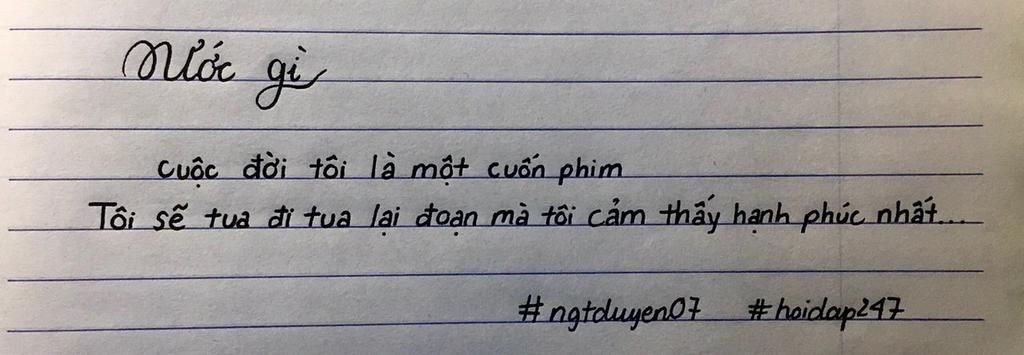 Nước gì
cuộc đời tôi là một cuốn phim
Tôi sẽ tua đi tua lại đoạn mà tôi cảm thấy hạnh phúc nhất...
#ngtduyen07 #hoidap247